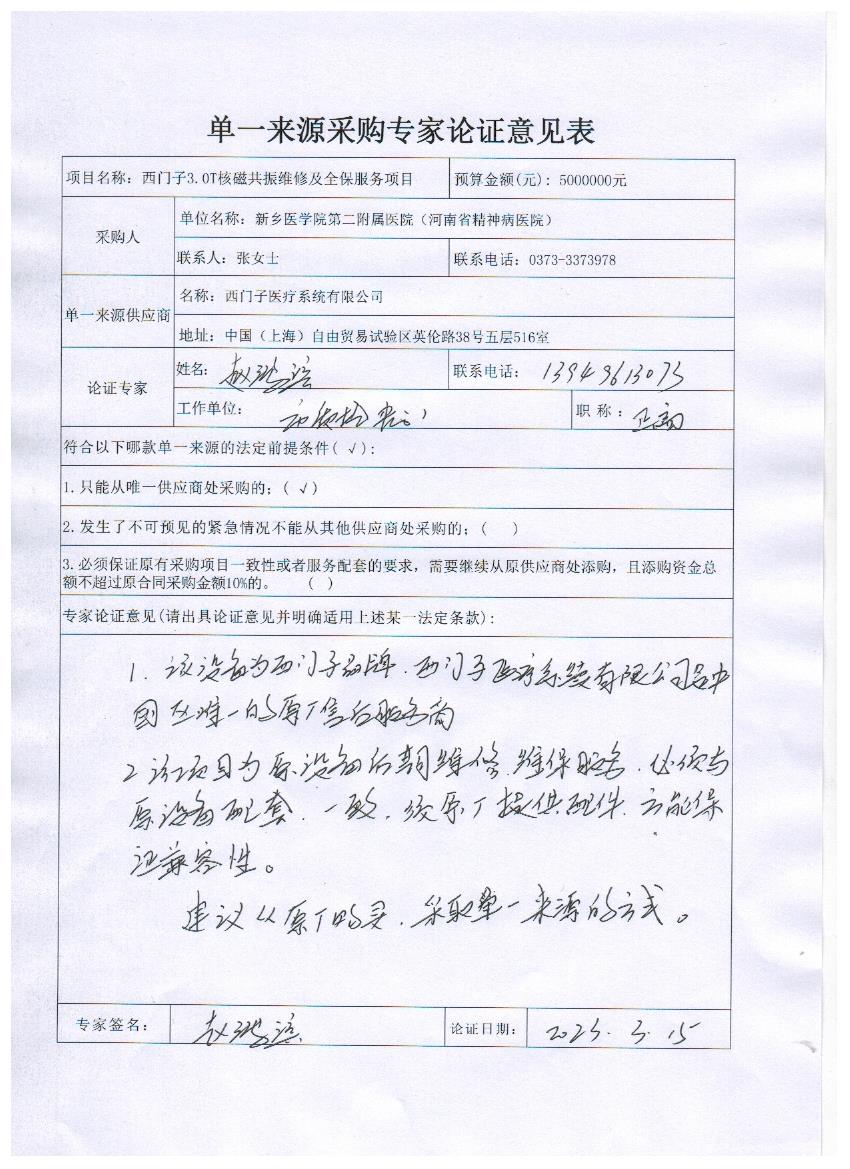 单一来源采购专家论证意见表
项目名称：西门子3.0T核磁共振维修及全保服务项目 预算金额(元)：5000000元
采购人
单位名称：新乡医学院第二附属医院（河南省精神病医院）
联系人：张女士 联系电话：0373-3373978
单一来源供应商
名称：西门子医疗系统有限公司
地址：中国（上海）自由贸易试验区英伦路38号五层516室
论证专家
姓名：赵 联系电话：13949613073
工作单位： 职 称：正高
符合以下哪款单一来源的法定前提条件( √ )：
1.只能从唯一供应商处采购的；( √ )
2.发生了不可预见的紧急情况不能从其他供应商处采购的；( )
3.必须保证原有采购项目一致性或者服务配套的要求，需要继续从原供应商处添购，且添购资金总
额不超过原合同采购金额10%的。 ( )
专家论证意见(请出具论证意见并明确适用上述某一法定条款)：
1. 该设备为西门子品牌.西门子医疗系统有限公司是中
国区唯一的原厂售后服务商
2 该项目为原设备后期维修、维保服务.必须与
原设备配套.一致，须原厂提供配件.方能保
证兼容性。
建议从原厂购买.采取单一来源的方式。
专家签名：赵 论证日期：2023.3.15